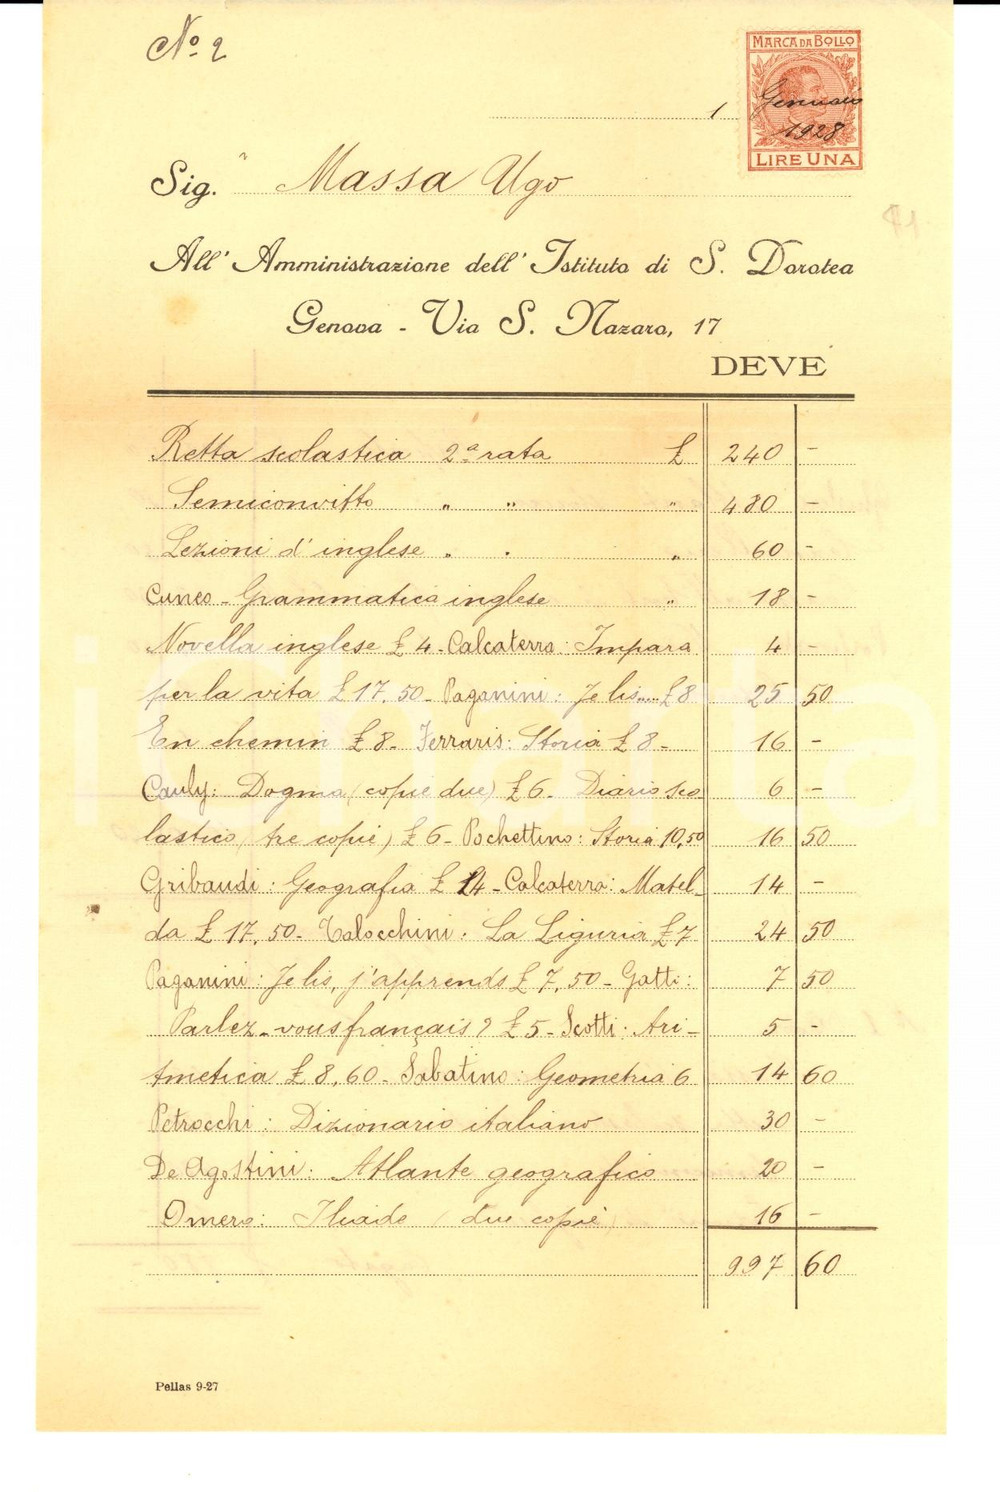 Nº 2
MARCA DA BOLLO
1 Gennaio
1928
LIRE UNA
Sig. Massa Ugo
All' Amministrazione dell' Istituto di S. Dorotea
Genova - Via S. Nazaro, 17
DEVE
Retta scolastica 2ª rata £ 240 -
Semiconvitto " " " 480 -
Lezioni d'inglese " " " 60 -
Cuneo - Grammatica inglese " 18 -
Novella inglese £ 4 - Calcaterra: Impara 4 -
per la vita £ 17,50 - Paganini: Je lis.... £ 8 25 50
En chemin £ 8 - Ferraris: Storia £ 8 - 16 -
Cauly: Dogma (copie due) £ 6 - Diario sco 6 -
lastico (tre copie) £ 6 - Pochettino: Storia 10,50 16 50
Gribaudi: Geografia £ 14 - Calcaterra: Matel- 14 -
da £ 17,50 - Talocchini: La Liguria £ 7 24 50
Paganini: Je lis, j'apprends £ 7,50 - Gatti: 7 50
Parlez-vous français? £ 5 - Scotti: Ari- 5 -
tmetica £ 8,60 - Sabatino: Geometria 6 14 60
Petrocchi: Dizionario italiano 30 -
De Agostini: Atlante geografico 20 -
Omero: Iliade (due copie) 16 -
997 60
Pellas 9-27